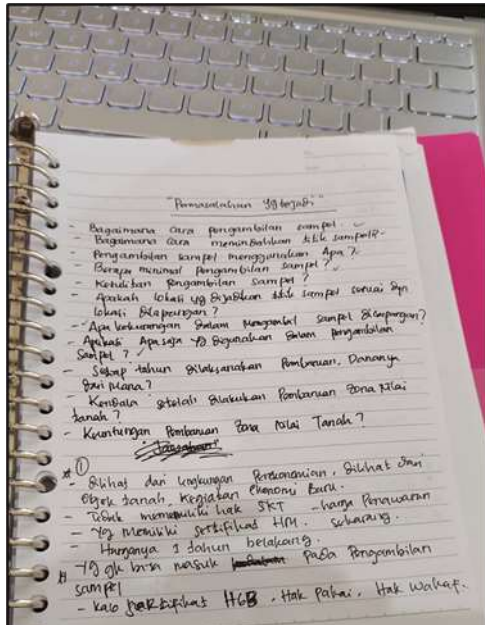 "Permasalahan yg terjadi"
- Bagaimana Cara pengambilan sampel.
- Bagaimana Cara memindahkan titik sampel?
- Pengambilan sampel menggunakan Apa?
- Berapa minimal pengambilan sampel?
- Kesulitan pengambilan sampel?
- Apakah lokasi yg dijadikan titik sampel sesuai dgn
lokasi dilapangan?
- Apa kekurangan dalam mengambil sampel dilapangan?
- Aplikasi Apa saja yg digunakan dalam pengambilan
Sampel?
- Setiap tahun dilaksanakan Pembaruan, Dananya
dari mana?
- Kendala setelah dilakukan Pembaruan Zona Nilai
tanah?
- Keuntungan Pembaruan Zona Nilai Tanah?
Jawaban
① 
- dilihat dari lingkungan Perekonomian, dilihat dari
Objek tanah, Kegiatan ekonomi Baru.
- Tidak memiliki hak SKT - harga Penawaran
- Yg memiliki sertifikat HM. sekarang.
- Harganya 1 tahun belakang.
- Yg gk bisa masuk pada Pengambilan
sampel
- kalo sertifikat HGB, Hak Pakai, Hak Wakaf.